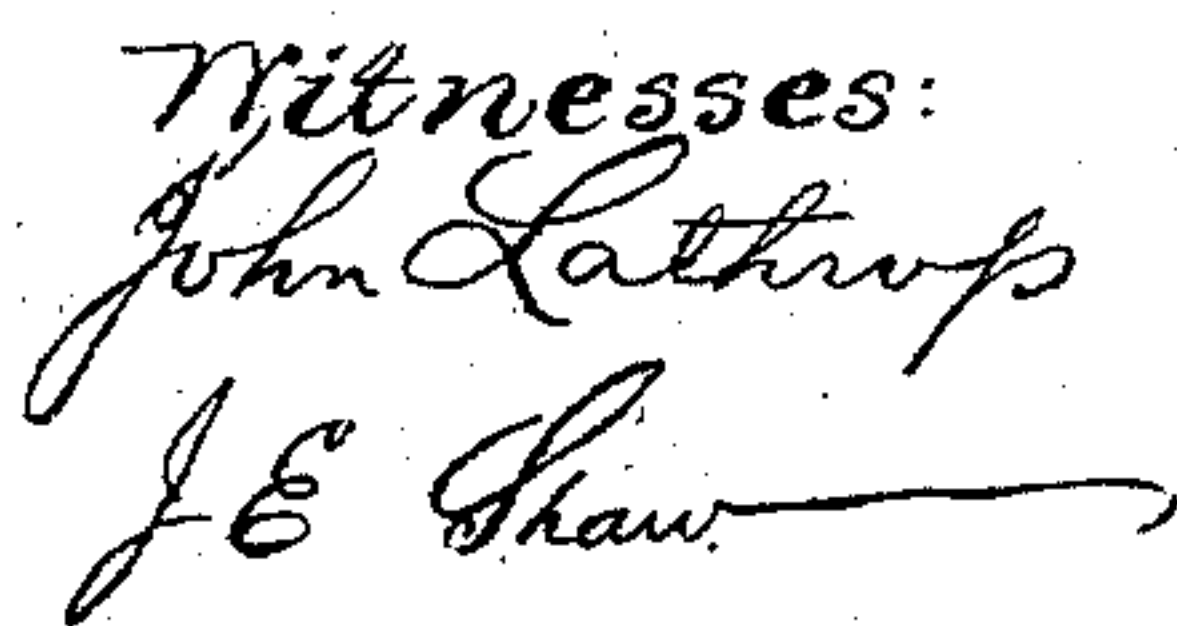 Witnesses:
John Lathrop
J E Shaw